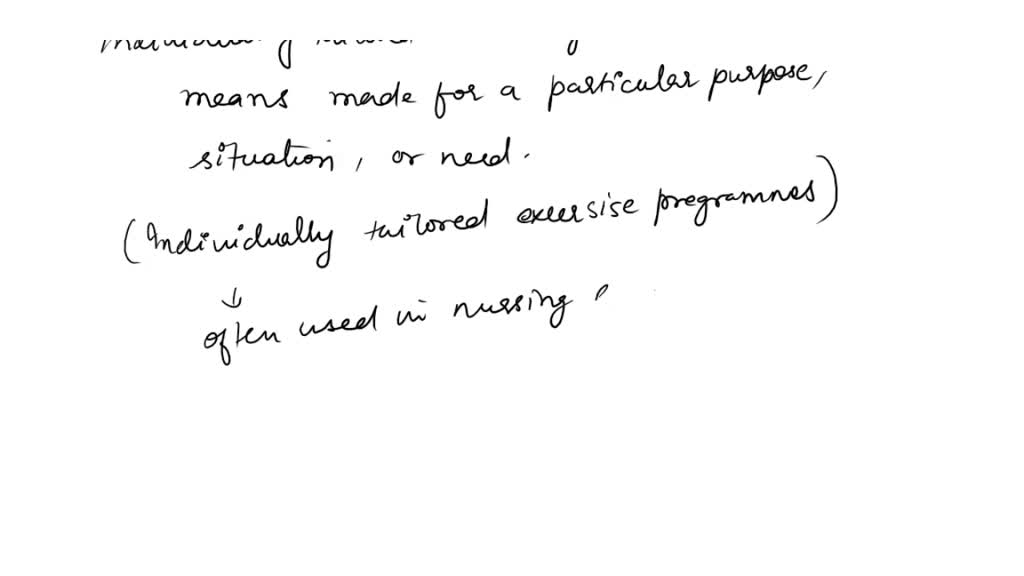 means made for a particular purpose,
situation, or need.
(Individually tailored excersise programmes)
↓
often used in nussing